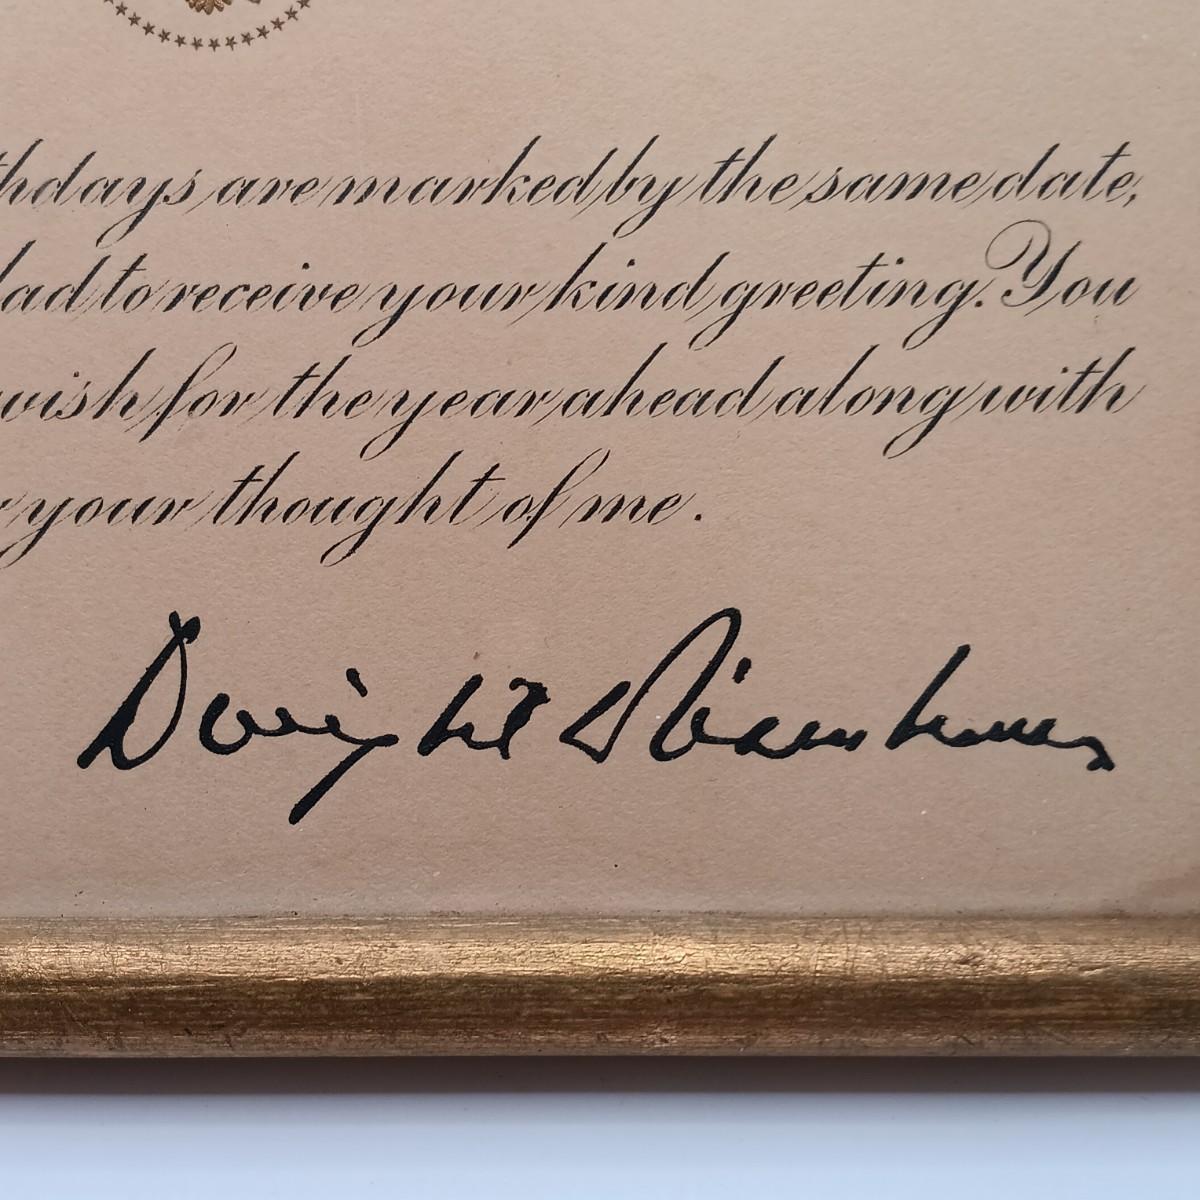 thdays are marked by the same date,
lad to receive your kind greeting. You
wish for the year ahead along with
your thought of me.
Dwight D Eisenhower